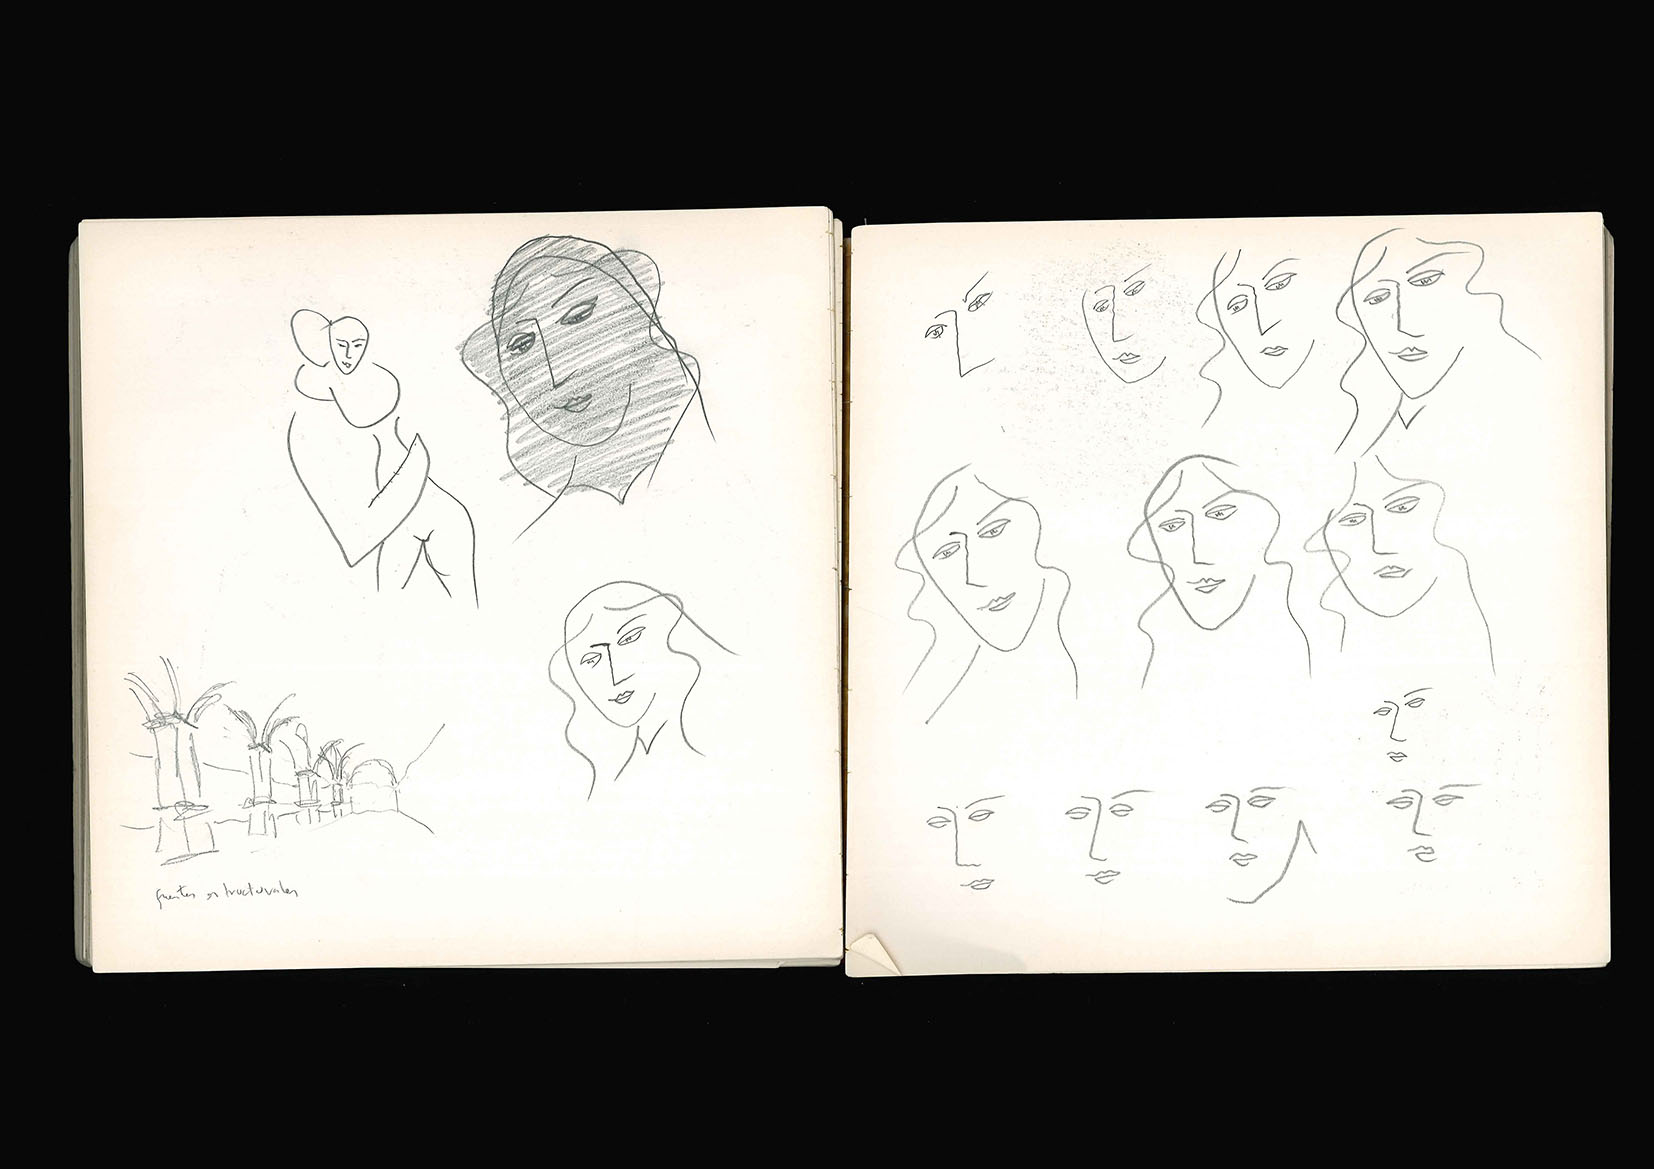 fuentes estructurales